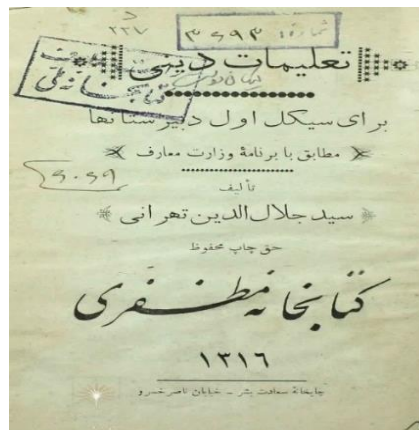 ۲۲۷
شماره ۳۶۹۳
تعلیمات دینی
برای سیکل اول دبیرستانها
مطابق با برنامهٔ وزارت معارف
تألیف
سید جلال‌الدین تهرانی
حق چاپ محفوظ
کتابخانه مظفری
۱۳۱۶
چاپخانهٔ سعادت بشر ـ خیابان ناصر خسرو